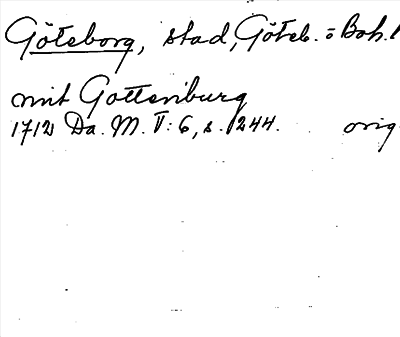 Göteborg, stad, Göteb. o Boh. l
mit Gottenburg
1712 Da. M. V: 6, s. 244. orig